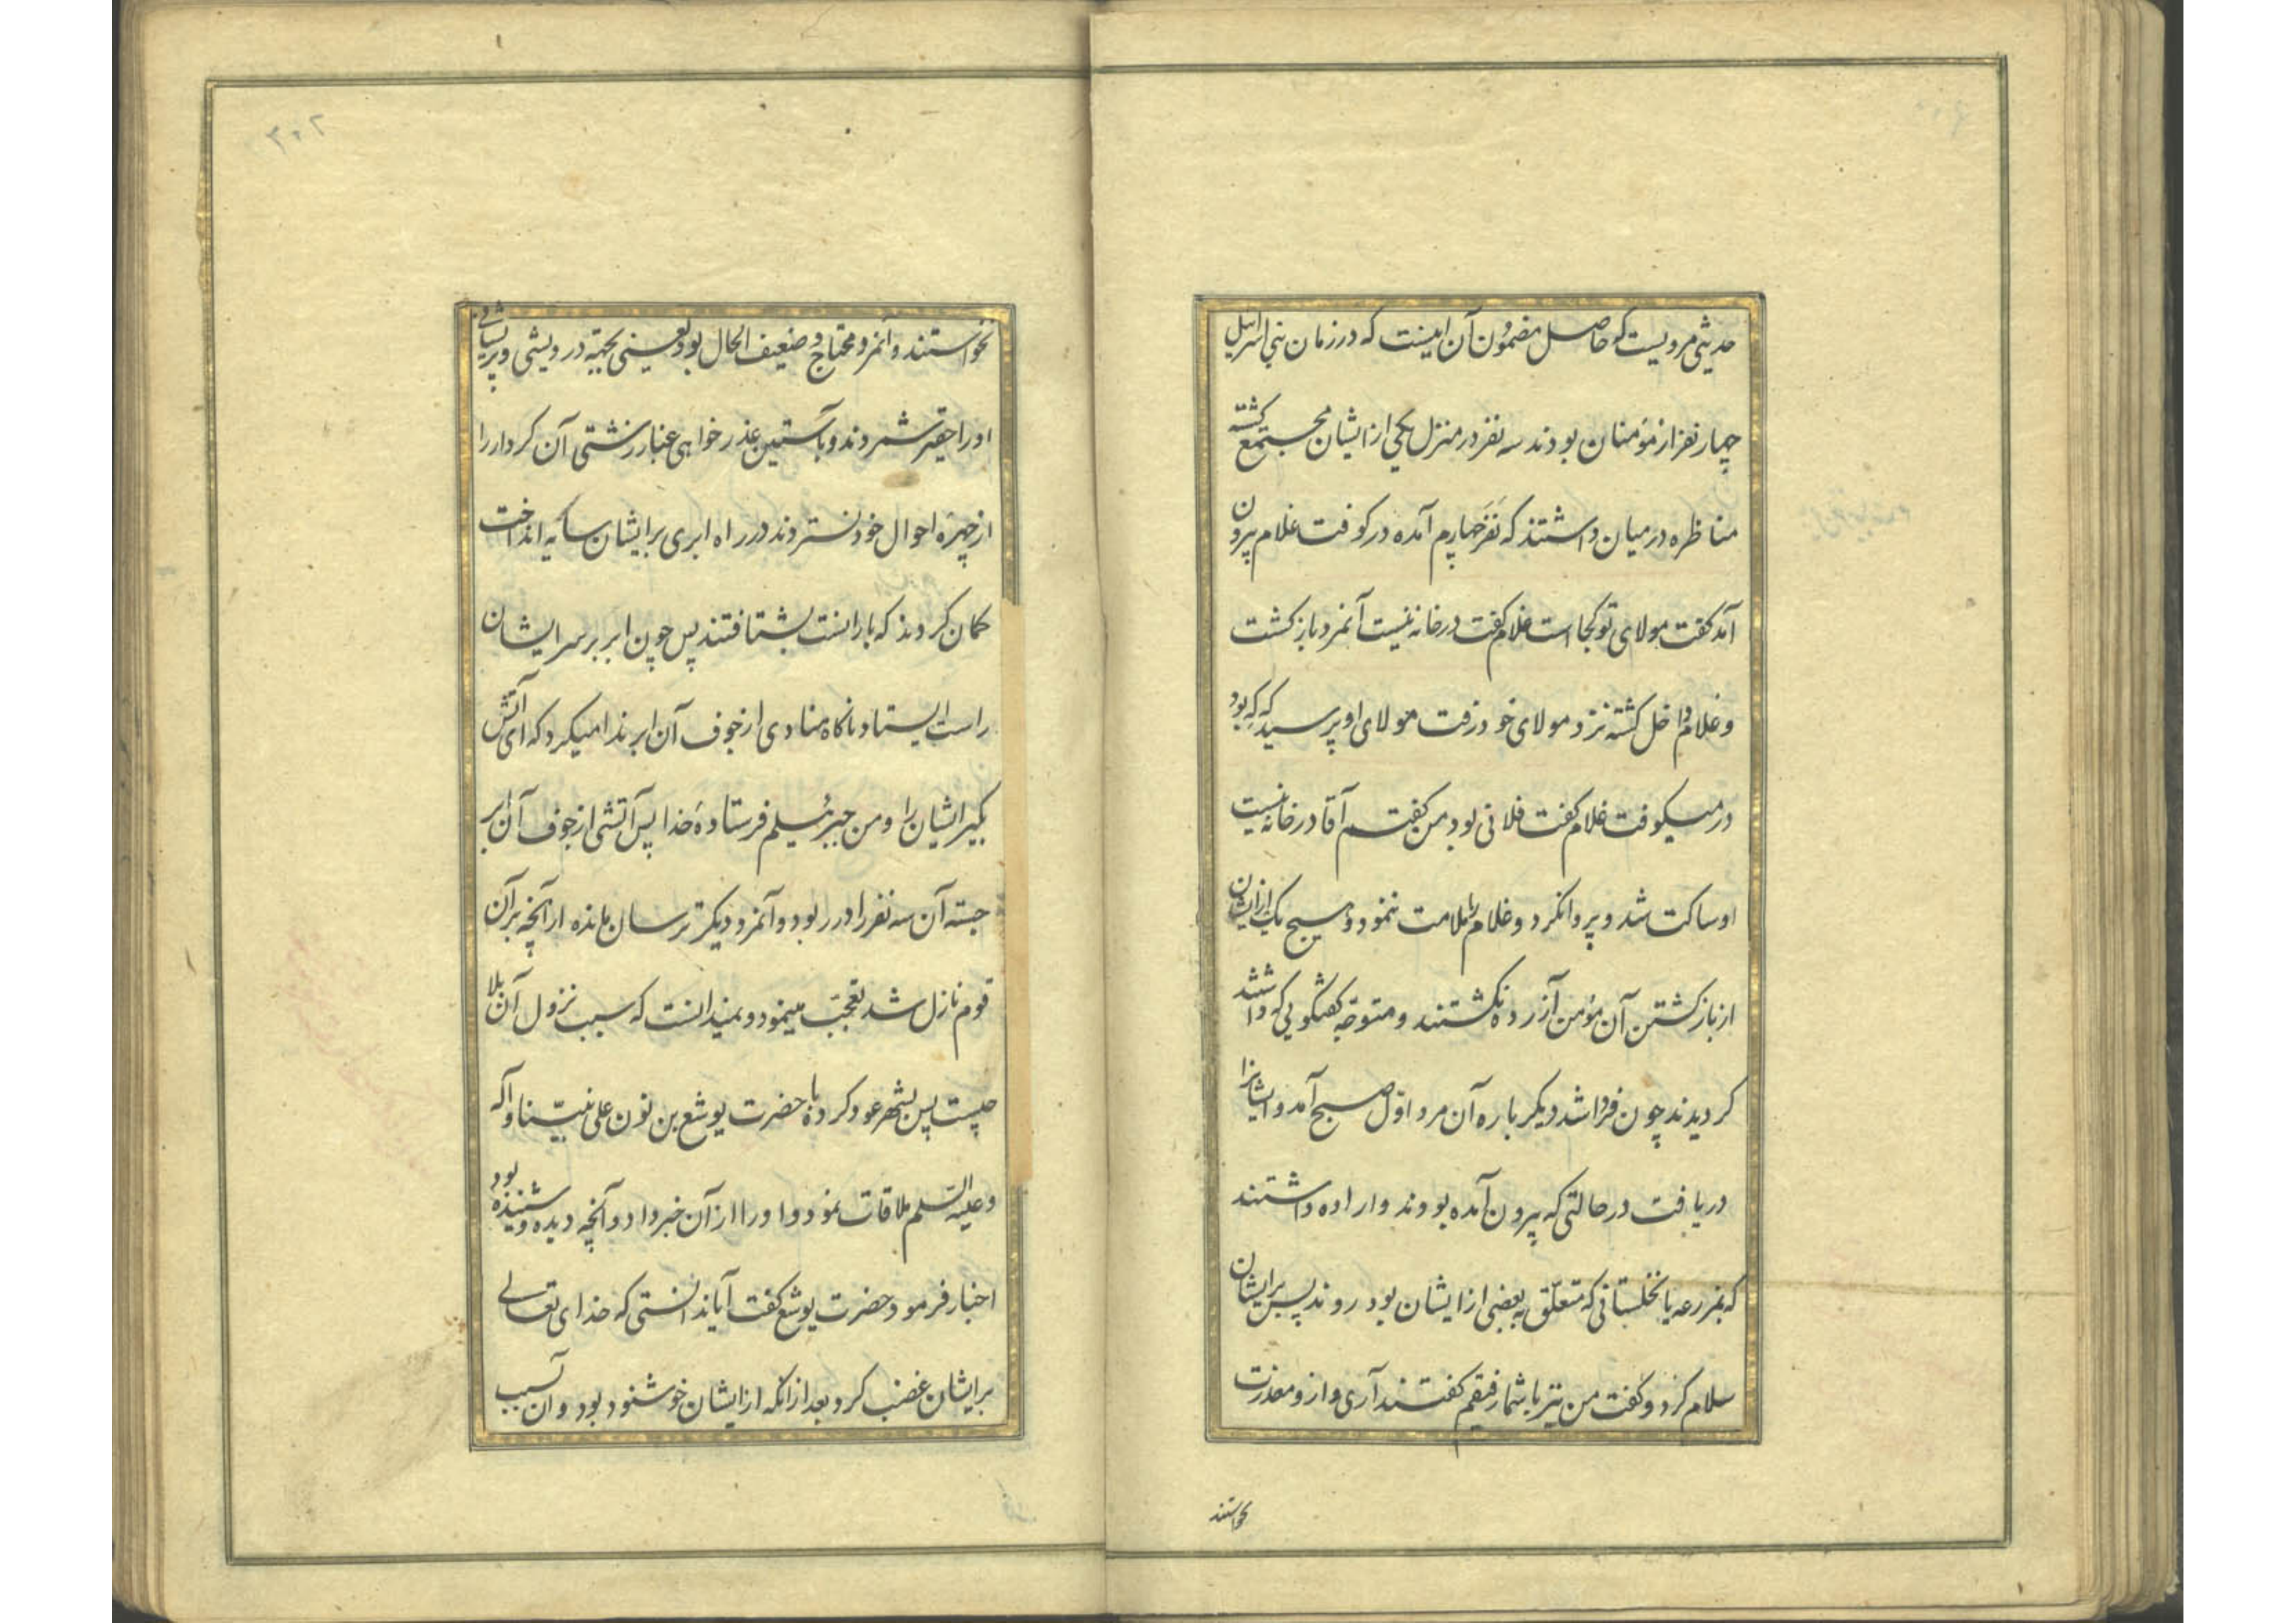 حدیثی مرویست که حاصل مضمون آن اینست که در زمان بنی اسرائیل
چهار نفر از مؤمنان بودند سه نفر در منزل یکی از ایشان مجتمع گشته
مناظره در میان داشتند که نفر چهارم آمده در کوفت غلام بیرون
آمد گفت مولای تو کجا است غلام گفت در خانه نیست آنمرد باز گشت
و غلام داخل گشته نزد مولای خود رفت مولای او پرسید که که بود
در میکوفت غلام گفت فلانی بود من گفتم آقا در خانه نیست
او ساکت شد و پروا نکرد و غلام را ملامت ننمود و هیچ یک از ایشان
از باز گشتن آن مؤمن آزرده نگشتند و متوجه گفتگویی که داشتند
گردیدند چون فردا شد دیگر باره آن مرد اول صبح آمد و ایشانرا
دریافت در حالتی که بیرون آمده بودند و اراده داشتند
که بمزرعه یا نخلستانی که متعلق به بعضی از ایشان بود روند پس بر ایشان
سلام کرد و گفت من نیز با شما رفیقم گفتند آری و ازو معذرت
نخواستند
نخواستند و آنمرد محتاج و ضعیف الحال بود یعنی بجهته درویشی و پریشانی
او را حقیر شمردند و بآستین عذر خواهی غبار زشتی آن کردار را
از چهره احوال خود نستردند در راه ابری بر ایشان سایه انداخت
گمان کردند که بارانست بشتافتند پس چون ابر بر سر ایشان
راست ایستاد ناگاه منادی از جوف آن ابر ندا میکرد که ای آتش
بگیر ایشان را و من جبرئیلم فرستاده خدا پس آتشی از جوف آن ابر
جسته آن سه نفر را در ربود و آنمرد دیگر ترسان مانده از آنچه بر آن
قوم نازل شد تعجب مینمود و نمیدانست که سبب نزول آن بلا
چیست پس بشهر عود کرده با حضرت یوشع بن نون علی نبینا و آله
و علیه السلم ملاقات نمود و او را از آن خبر داد و آنچه دیده و شنیده بود
اخبار فرمود حضرت یوشع گفت آیا ندانستی که خدای تعالی
بر ایشان غضب کرد بعد از انکه از ایشان خوشنود بود و آن بسبب
۳۰۲